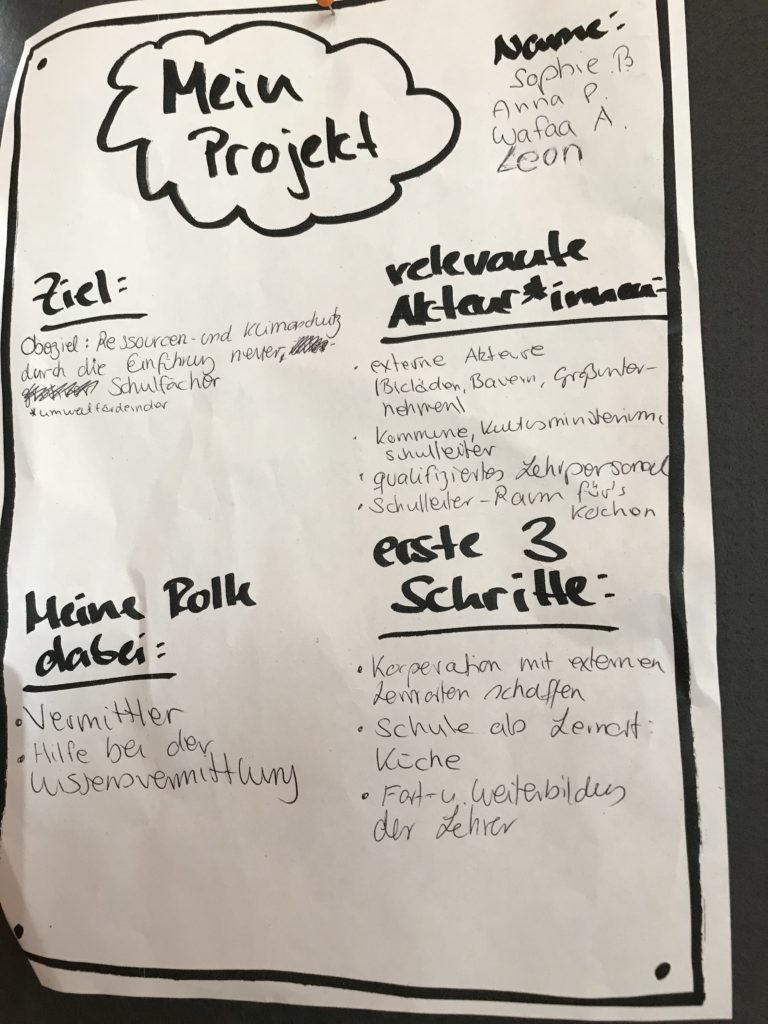 Mein
Projekt
Name:
Sophie B
Anna P.
Wafaa A.
Leon
Ziel:
Obeziel: Ressourcen- und Klimaschutz
durch die Einführung neuer,
Schulfächer
*umweltfördernder
relevante
Akteur*innen:
• externe Akteure
(Bioläden, Bauern, Großunter-
nehmen)
• Kommune, Kultusministerium,
Schulleiter
• qualifiziertes Lehrpersonal
• Schulleiter - Raum für's
Kochen
Meine Rolle
dabei:
• Vermittler
• Hilfe bei der
Wissensvermittlung
erste 3
Schritte:
• Korperation mit externen
Lernorten schaffen
• Schule als Lernort:
Küche
• Fort- u. Weiterbildung
der Lehrer